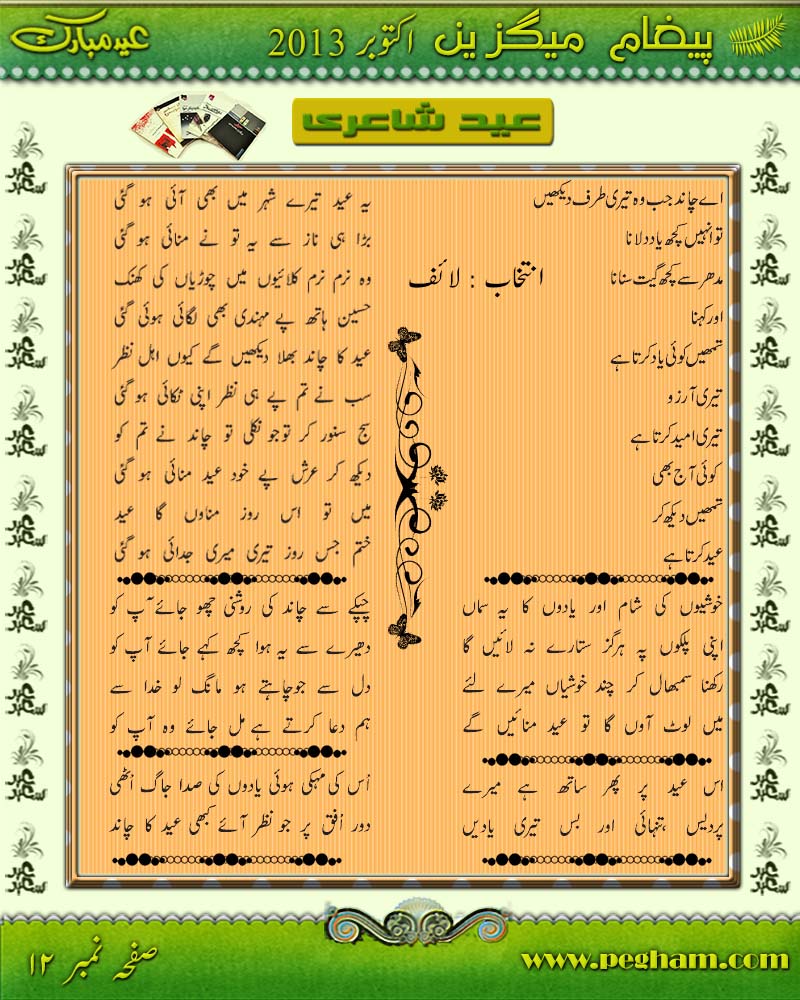 پیغام میگزین اکتوبر 2013
عید مبارک
عید شاعری
اے چاند جب وہ تیری طرف دیکھیں
تو انہیں کچھ یاد دلانا
مدھر سے کچھ گیت سنانا
اور کہنا
تمھیں کوئی یاد کرتا ہے
تیری آرزو
تیری امید کرتا ہے
کوئی آج بھی
تمھیں دیکھ کر
عید کرتا ہے
خوشیوں کی شام اور یادوں کا یہ سماں
اپنی پلکوں پہ ہرگز ستارے نہ لائیں گا
رکھنا سمبھال کر چند خوشیاں میرے لئے
میں لوٹ آوں گا تو عید منائیں گے
اس عید پر پھر ساتھ ہے میرے
پردیس ،تنہائی اور بس تیری یادیں
انتخاب : لائف
یہ عید تیرے شہر میں بھی آئی ہو گئی
بڑا ہی ناز سے یہ تو نے منائی ہو گئی
وہ نرم نرم کلائیوں میں چوڑیاں کی کھنک
حسین ہاتھ پے مہندی بھی لگائی ہوئی گئی
عید کا چاند بھلا دیکھیں گے کیوں اہل نظر
سب نے تم پے ہی نظر اپنی ٹکائی ہو گئی
سج سنور کر تو جو نکلی تو چاند نے تم کو
دیکھ کر عرش پے خود عید منائی ہو گئی
میں تو اس روز مناوں گا عید
ختم جس روز تیری میری جدائی ہو گئی
چپکے سے چاند کی روشنی چھو جائے آپ کو
دھیرے سے یہ ہوا کچھ کہے جائے آپ کو
دل سے جو چاہتے ہو مانگ لو خدا سے
ہم دعا کرتے ہے مل جائے وہ آپ کو
اُس کی مہکی ہوئی یادوں کی صدا جاگ اٹھی
دور اُفق پر جو نظر آئے کبھی عید کا چاند
www.pegham.com
صفحہ نمبر ۱۲